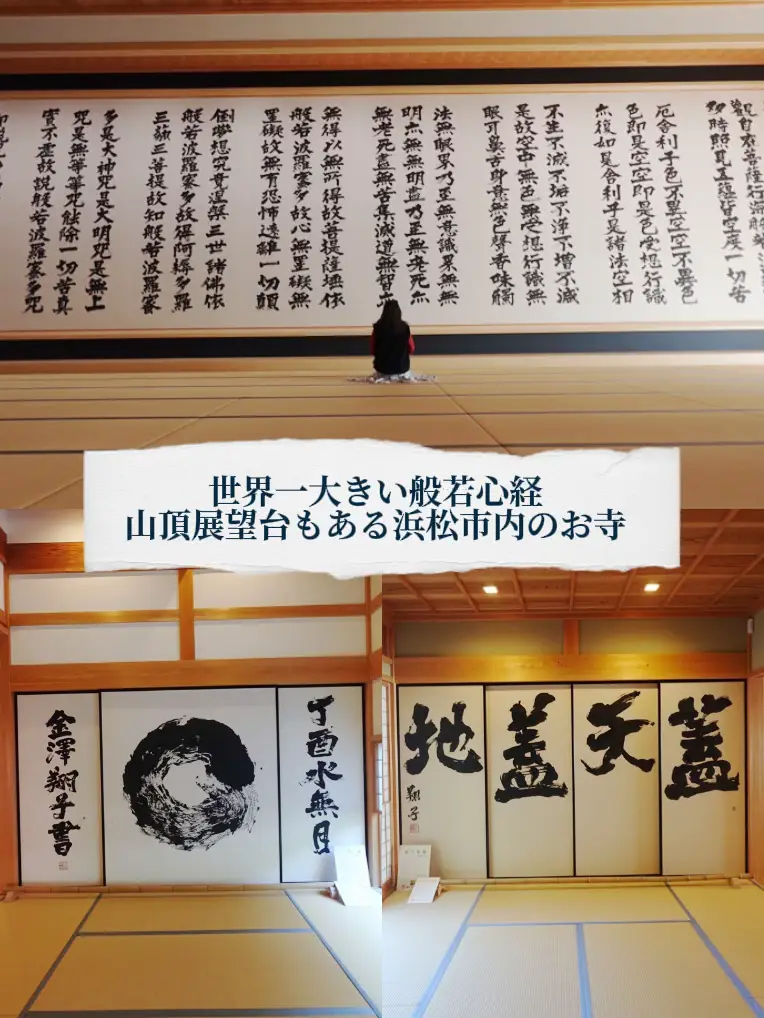 觀自在菩薩行深般若
多時照見五蘊皆空度一切苦
厄舍利子色不異空空不異色
色即是空空即是色受想行識
亦復如是舍利子是諸法空相
不生不滅不垢不淨不增不減
是故空中無色無受想行識無
眼耳鼻舌身意無色聲香味觸
法無眼界乃至無意識界無無
明亦無無明盡乃至無老死亦
無老死盡無苦集滅道無智亦
無得以無所得故菩提薩埵依
般若波羅蜜多故心無罣礙無
罣礙故無有恐怖遠離一切顛
倒夢想究竟涅槃三世諸佛依
般若波羅蜜多故得阿耨多羅
三藐三菩提故知般若波羅蜜
多是大神咒是大明咒是無上
咒是無等等咒能除一切苦真
實不虛故說般若波羅蜜多咒
世界一大きい般若心経
山頂展望台もある浜松市内のお寺
丁酉水無月
金澤翔子書
蓋天蓋地
翔子